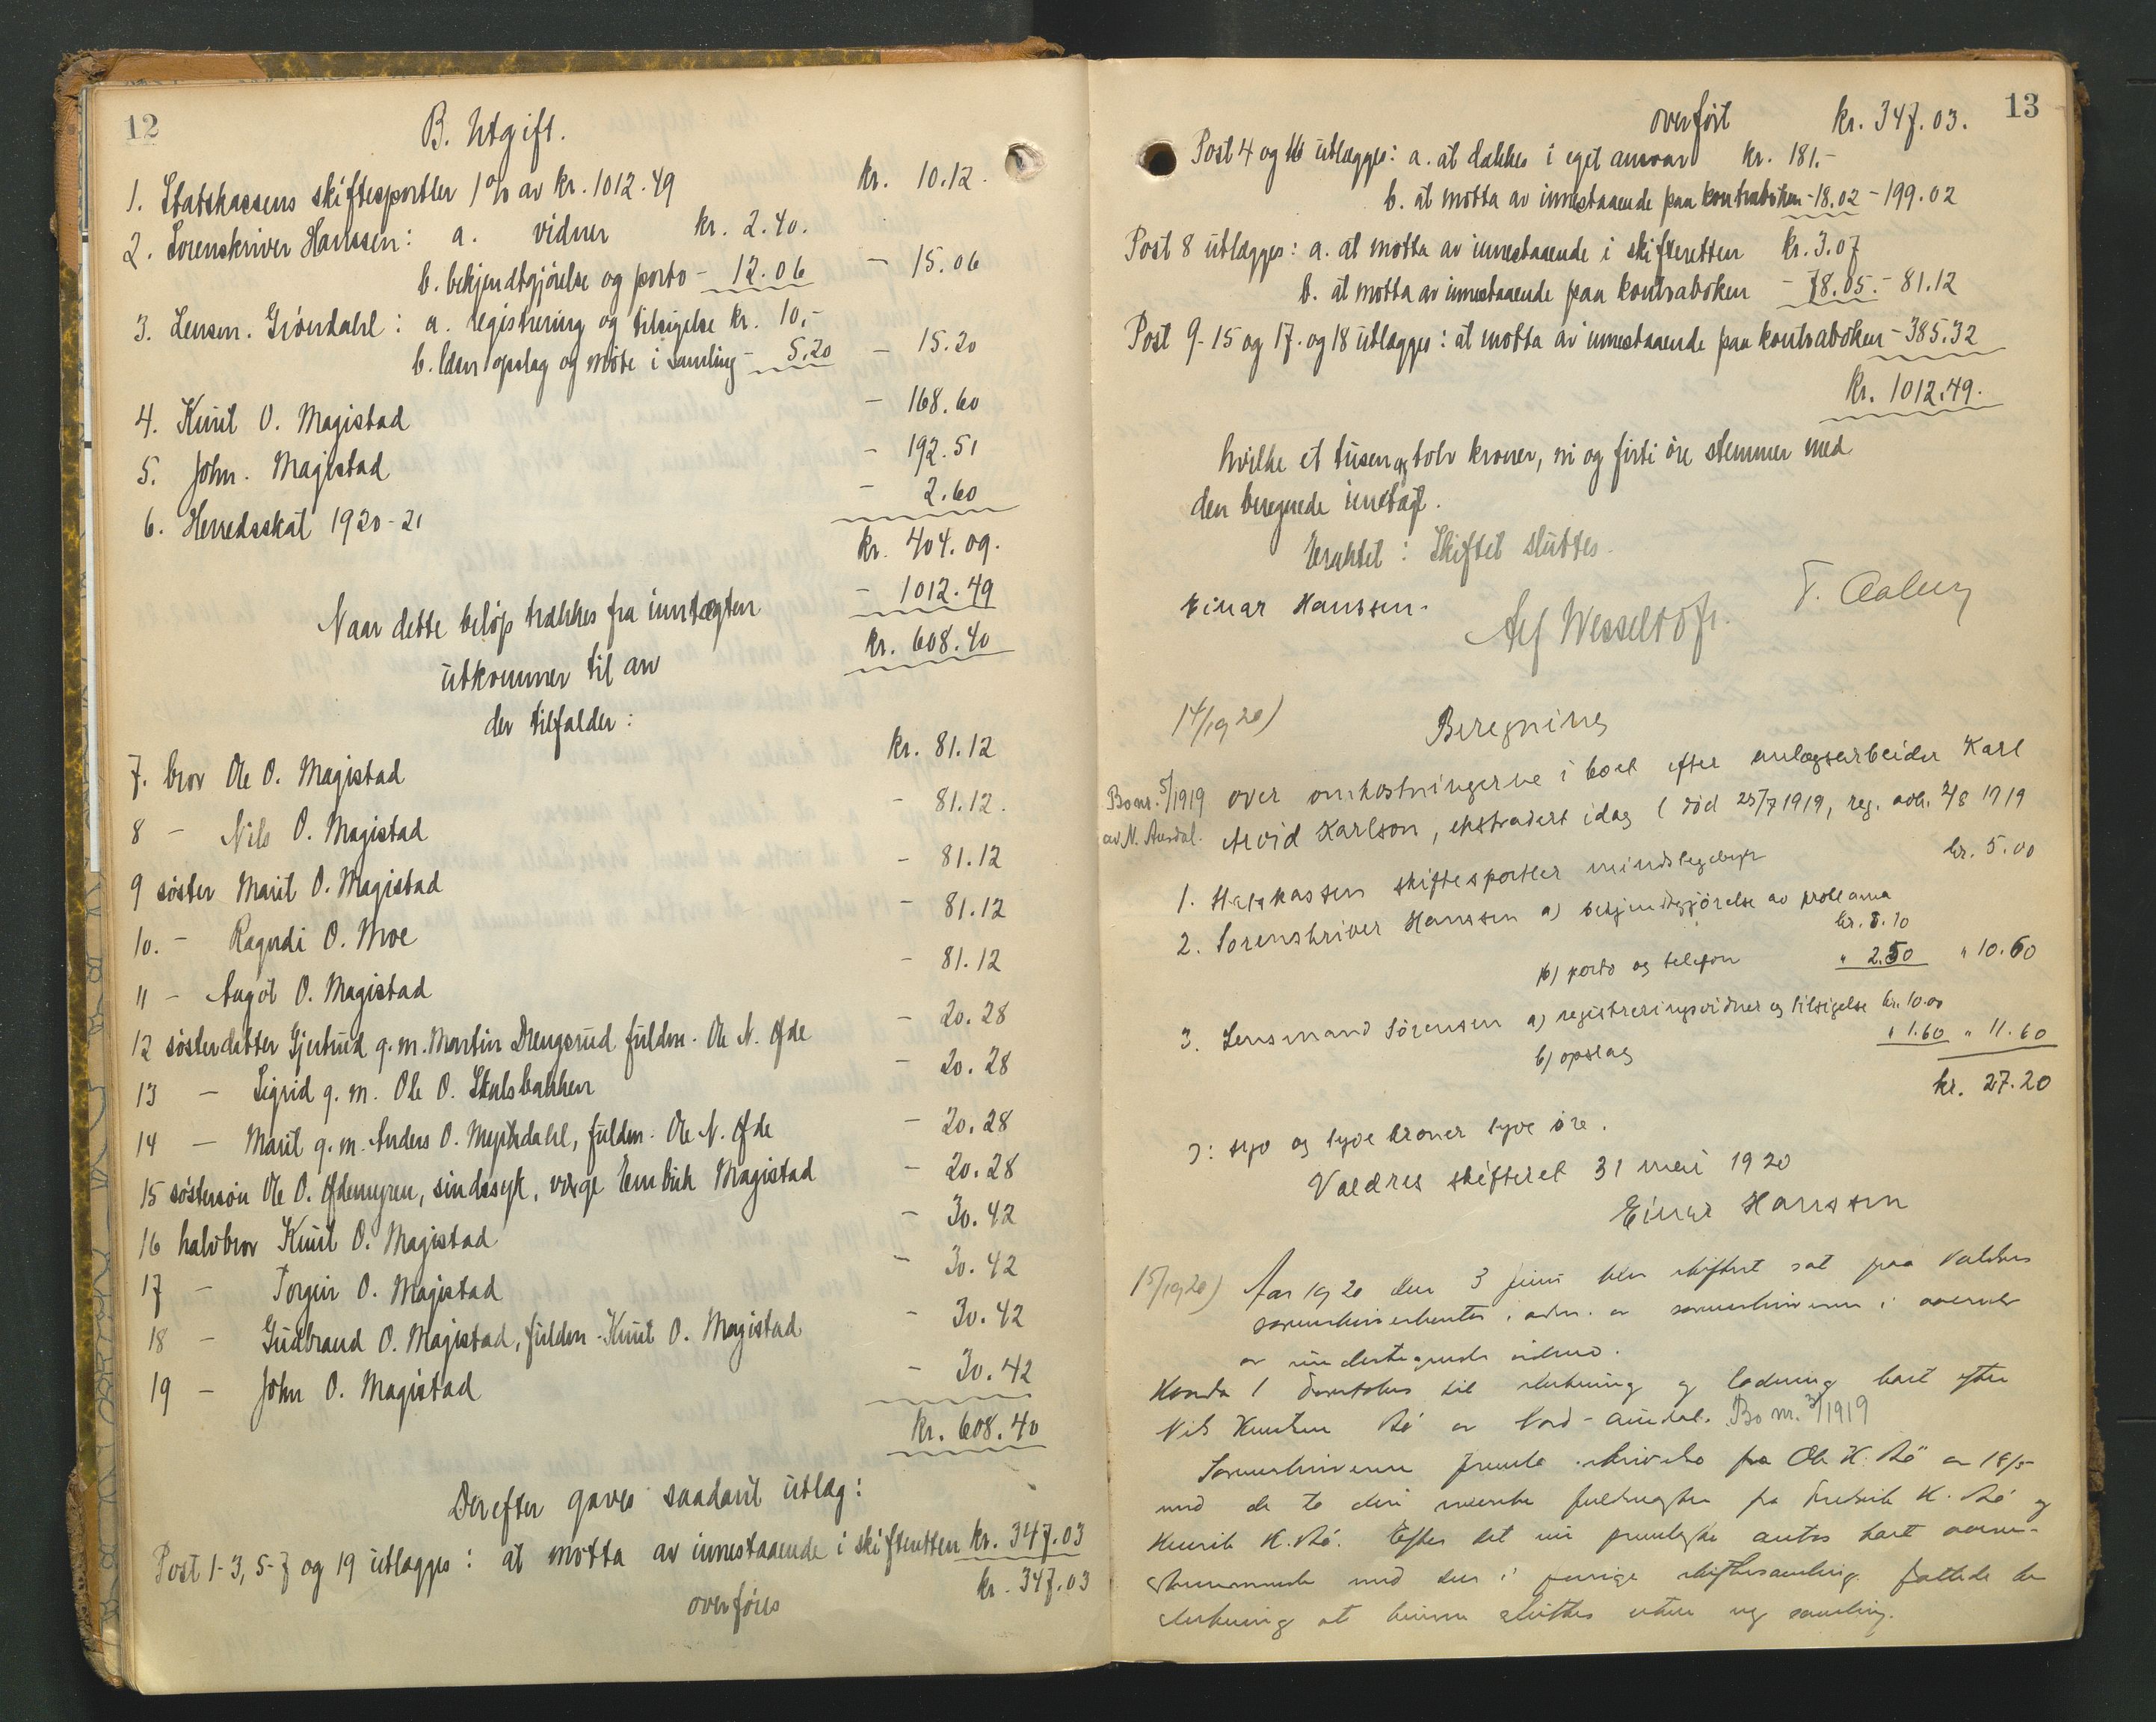 12
B. Utgift.
1. Statskassens skiftesportler 1% av kr. 1012.49 kr. 10.12.
2. Sorenskriver Hanssen: a. vidner kr. 2.40.
b. bekjendtgjörelse og porto - 12.06 - 15.06
3. Lensm. Gröndahl: a. registrering og tilsigelse kr. 10,-
b. opslag og möte i samling - 5.20 - 15.20
4. Knut O. Magistad - 168.60
5. John. Magistad - 192.51
6. Herredsskat 1920-21 - 2.60
kr. 404.09.
Naar dette belöp trækkes fra inntægten - 1012.49
utkommer til arv kr. 608.40
der tilfalder:
7. bror Ole O. Magistad kr. 81.12
8 - Nils O. Magistad - 81.12.
9 söster Marit O. Magistad - 81.12
10. - Ragndi O. Moe - 81.12
11 - Augot O. Magistad - 81.12
12 sösterdatter Gjertrud g. m. Martin Drengsrud fuldm. Ole N. Öfde - 20.28
13 - Sigrid g. m. Ole O. Skalsbakken - 20.28
14 - Marit g. m. Anders O. fuldm. Ole N. Öfde - 20.28
15 söstersön Ole O. sindssyk, verge Embrik Magistad - 20.28
16 halvbror Knut O. Magistad - 30.42
17 - Torgeir O. Magistad - 30.42
18 - Gudbrand O. Magistad, fuldm. Knut O. Magistad - 30.42
19 - John O. Magistad - 30.42
kr. 608.40
Derefter gaves saadant utlæg:
Post 1-3, 5-7 og 19 utlægges: at motta av innestaaende i skifteretten kr. 347.03
overföres kr. 347.03
13
overfört kr. 347.03.
Post 4 og 16 utlægges: a. at dækkes i eget ansvar kr. 181.-
b. at motta av innestaaende paa kontraboken - 18.02 - 199.02
Post 8 utlægges: a. at motta av innestaaende i skifteretten kr. 3.07
b. at motta av innestaaende paa kontraboken - 78.05. - 81.12
Post 9-15 og 17. og 18 utlægges: at motta av innestaaende paa kontraboken - 385.32
kr. 1012.49.
hvilke et tusen og tolv kroner, ni og firti öre stemmer med
den beregnede inntægt.
Eragtet: Skiftet sluttes.
Einar Hanssen.
Alf Wesseltoft. T. Aaberg
14/1920)
Beregning
Bo nr. 5/1919 over omkostningerne i boet efter anlægsarbeider Karl
av N. Aurdal. Arvid Karlson, ekstradert idag (död 25/7 1919, reg. avh. 2/8 1919
1. Statskassen skiftesportler mindstegebyr kr. 5.00
2. Sorenskriver Hanssen a) bekjendtgjörelse av proklama
kr. 8.10
b) porto og telefon " 2.50 " 10.60
3. Lensmand Sörensen a) registreringsvidner og tilsigelse kr. 10.00
b) opslag " 1.60 " 11.60
kr. 27.20
ɔ: syv og tyve kroner tyve öre.
Valdres skifteret 31 mai 1920
Einar Hanssen
15/1920) Aar 1920 den 3 juni blev skifteret sat paa Valdres
sorenskriverkontor, adm. av sorenskriveren i overvær
av undertegnede vidner.
Hvorda 1 foretokes til slutning og lodning boet efter
Nils Knutsen Bö av Nord-Aurdal. Bo nr. 3/1919
Sorenskriveren fremla skrivelse fra Ole K. Bö av 18/5
med de to deri nævnte fuldmagter fra Fredrik K. Bö og
Henrik K. Bö. Efter det nu fremlagte antas boet overens-
stemmende med den i forrige skiftesamling fattede be
slutning at kunne sluttes uten ny samling.